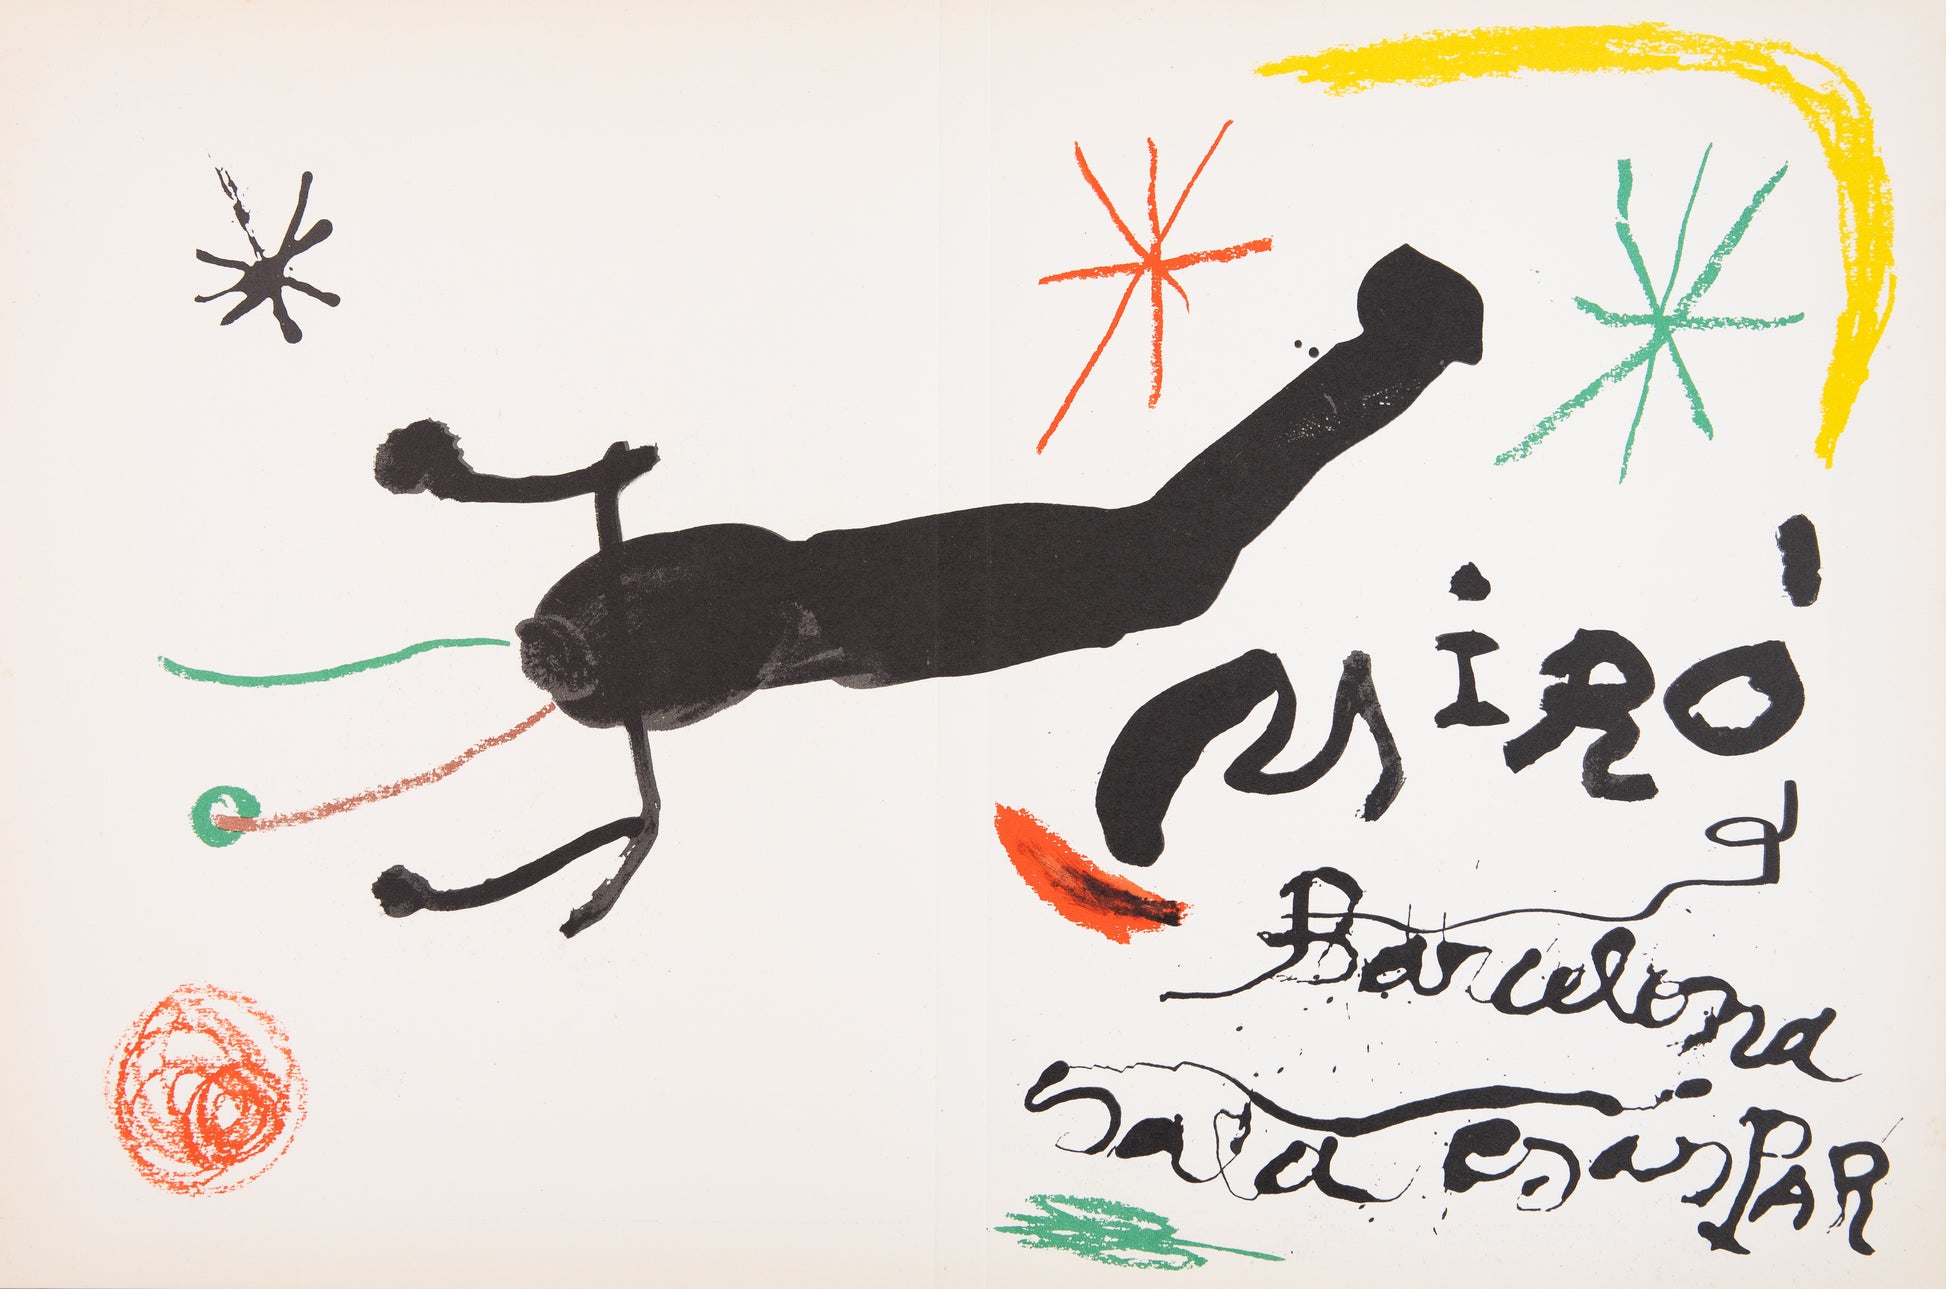 MiRó
Barcelona
Sala GasPAR